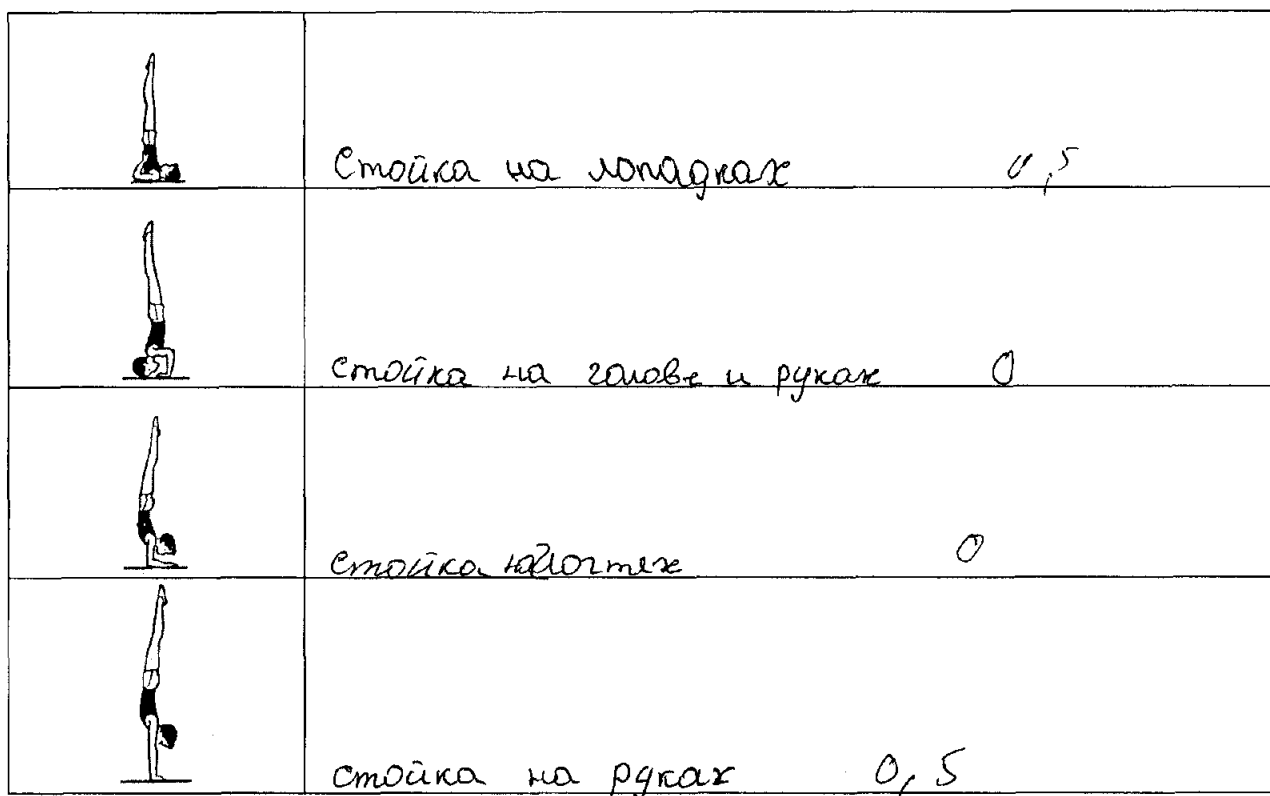 Стойка на лопадках 0,5
стойка на голове и руках 0
стойка 0
стойка на руках 0,5